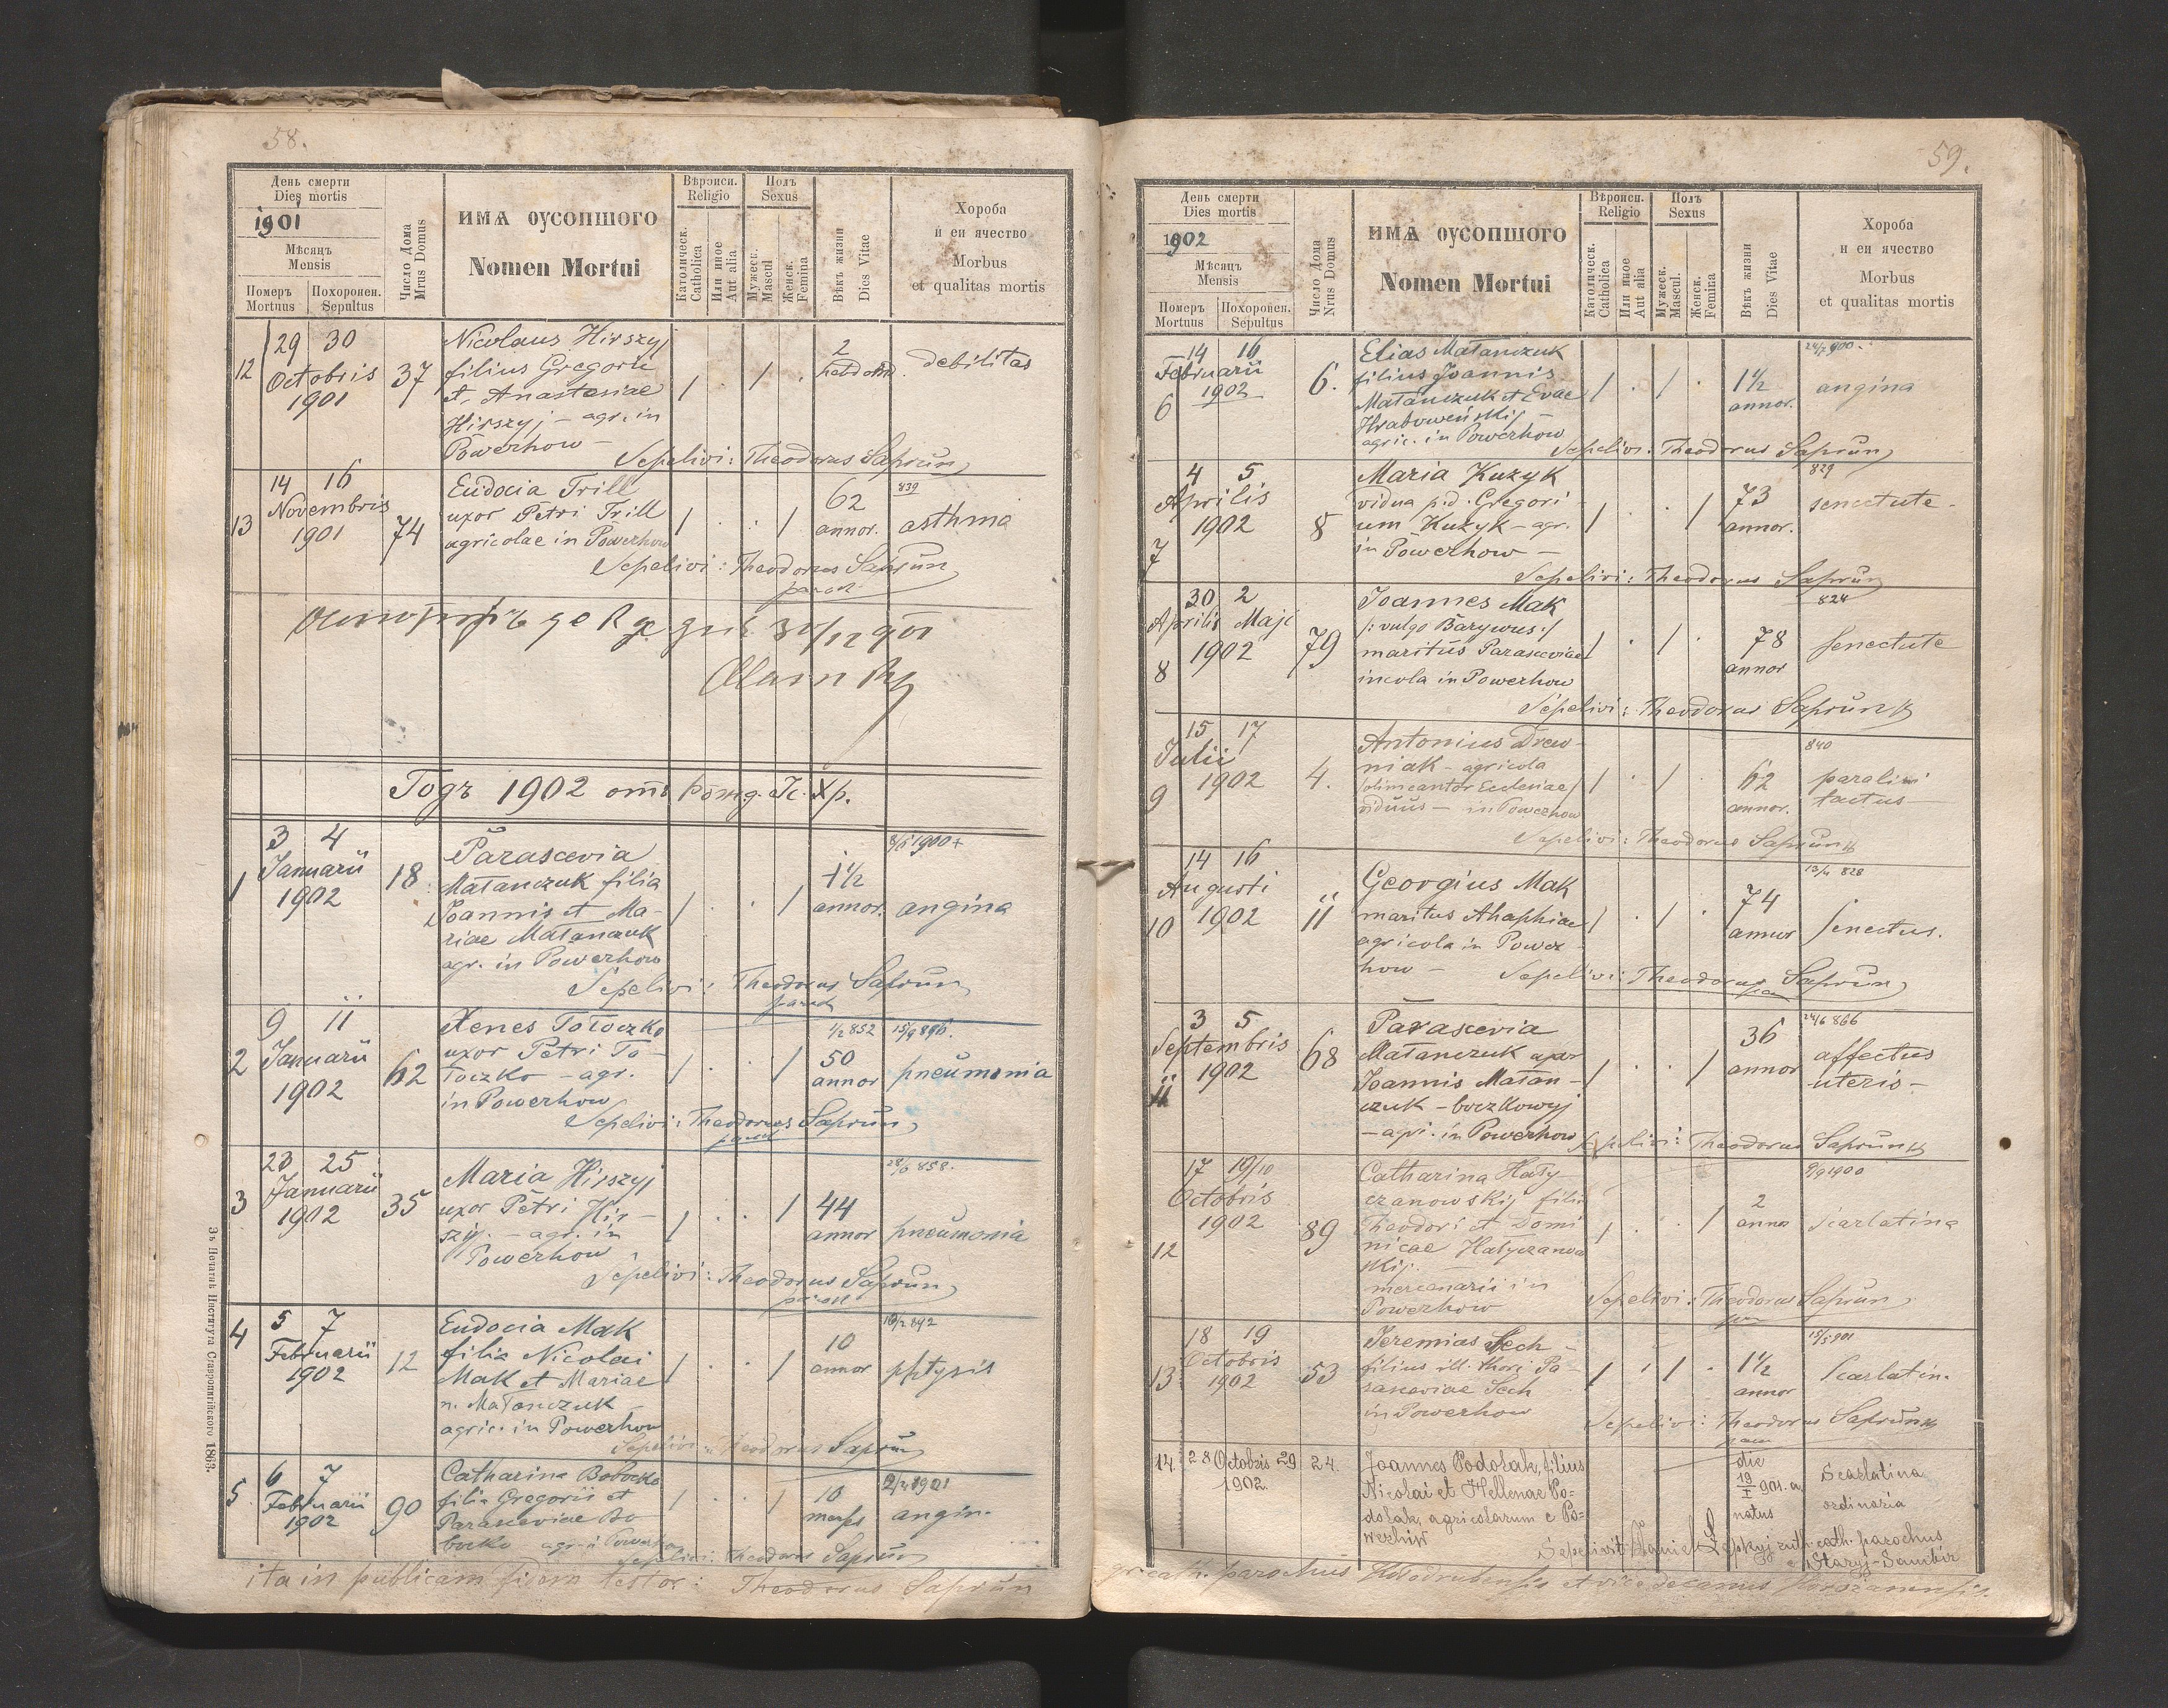 58.
День смерти
Dies mortis
1901
Мѣсяцъ
Mensis
Померъ
Mortuus
Похоронен.
Sepultus
Число Дома
Mrus Domus
ИМѦ ОУСОПШОГО
Nomen Mortui
Вѣроиси.
Religio
Католическ.
Catholica
Или иное
Aut alia
Полъ
Sexus
Мужеск.
Mascul
Женск.
Femina
Вѣкъ жизни
Dies Vitae
Хороба
и еи ячество
Morbus
et qualitas mortis
12
29 30
Octobris
1901
37
Nicolaus Hirszyj
filius Gregorii
et Anastasiae
Hirszyj — agr. in
Powerhow —
1 . 1 .
2
hebdom.
debilitas
Sepelivi: Theodorus Saprun
13
14 16
Novembris
1901
74
Eudocia Trill
uxor Petri Trill
agricolae in Powerhow
1 . . 1
62
annor.
839
asthma
Sepelivi: Theodorus Saprun
paroch
Годъ 1902 отъ рожд. Іс. Хр.
1
3 4
Januarii
1902
18
Parascevia
Matanczuk filia
Joannis et Ma-
riae Matanczuk
agr. in Powerhow
1 . . 1
1½
annor.
1900
angina
Sepelivi: Theodorus Saprun
paroch
2
9 11
Januarii
1902
62
Xenes Toloczko
uxor Petri To-
loczko — agr.
in Powerhow
1 . . 1
½ 852
50
annor
15/9 896.
pneumonia
Sepelivi: Theodorus Saprun
paroch
3
23 25
Januarii
1902
35
Maria Hirszyj
uxor Petri Hir-
szyj. — agr. in
Powerhow
1 . . 1
44
annor
858.
pneumonia
Sepelivi: Theodorus Saprun
paroch
4
5 7
Februarii
1902
12
Eudocia Mak
filia Nicolai
Mak et Mariae
n. Matanczuk
agric. in Powerhow
1 . . 1
10
annor
10/2 892
phtysis
Sepelivi: Theodorus Saprun
5
6 7
Februarii
1902
90
Catharina
filia Gregorii et
Parasceviae Bo
agr. in Powerhow
1 . . 1
10
menss
1901
angin.
Sepelivi: Theodorus Saprun
ita in publicam fidem testor: Theodorus Saprun
Зъ Печатнѣ Института Ставропигійского 1863.
59.
День смерти
Dies mortis
1902
Мѣсяцъ
Mensis
Померъ
Mortuus
Похоронен.
Sepultus
Число Дома
Nrus Domus
ИМѦ ОУСОПШОГО
Nomen Mortui
Вѣроисп.
Religio
Католическ.
Catholica
Или иное
Aut alia
Полъ
Sexus
Мужеск.
Mascul.
Женск.
Femina
Вѣкъ жизни
Dies Vitae
Хороба
и еи ячество
Morbus
et qualitas mortis
6
14 16
Februarii
1902
6.
Elias Matanczuk
filius Joannis
Matanczuk et Evae
Hrabowenskij —
agric. in Powerhow
1 . 1 .
1½
annor.
900.
angina
Sepelivi: Theodorus Saprun
7
4 5
Aprilis
1902
8
Maria Kuzyk
vidua p.d. Gregori
um Kuzyk — agr.
in Powerhow —
1 . . 1
73
annor.
829
senectute
Sepelivi: Theodorus Saprun
8
30 2
Aprilis Maji
1902
79
Joannes Mak
/: vulgo Barywus :/
maritus Parasceviae
incola in Powerhow
1 . 1 .
78
annor
824
senectute
Sepelivi: Theodorus Saprun
9
15 17
Julii
1902
4.
Antonius Drew-
niak — agricola
/olim cantor Ecclesiae/
viduus — in Powerhow
1 . 1 .
62
annor.
840
tactus
Sepelivi: Theodorus Saprun
10
14 16
Augusti
1902
11
Georgius Mak
maritus Ahaphiae
agricola in Power
how —
1 . 1 .
74
annor
828
senectus.
Sepelivi: Theodorus Saprun
11
3 5
Septembris
1902
68
Parascevia
Matanczuk uxor
Joannis Matan-
czuk — boczkowyj
— agr. in Powerhow
1 . . 1
36
annor
24/6 866
affectus
uteris —
Sepelivi: Theodorus Saprun
12
17 19/10
Octobris
1902
89
Catharina Haly
czanowskij filia
Theodori et Domi
nicae Halyczanow
skij.
mercenarii in
Powerhow
1 . . 1
2
annor
9/9 1900
scarlatina
Sepelivi: Theodorus Saprun
13
18 19
Octobris
1902
53
Jeremias Sech
filius ill. thori Pa
rasceviae Sech
in Powerhow
1 . 1 .
1½
annor
15/5 901
Scarlatin.
Sepelivi: Theodorus Saprun
14.
28 Octobris 29
1902.
24.
Joannes Podolak, filius
Nicolai et Hellenae Po-
dolak, agricolarum e Po-
werhiw
die
19/I 901. a
natus
Scarlatina
ordinaria
Sepelivit Daniel Lepkyj ruth. cath. parochus
e Staryj-Sambir
gr. cath. parochus et vice decanus